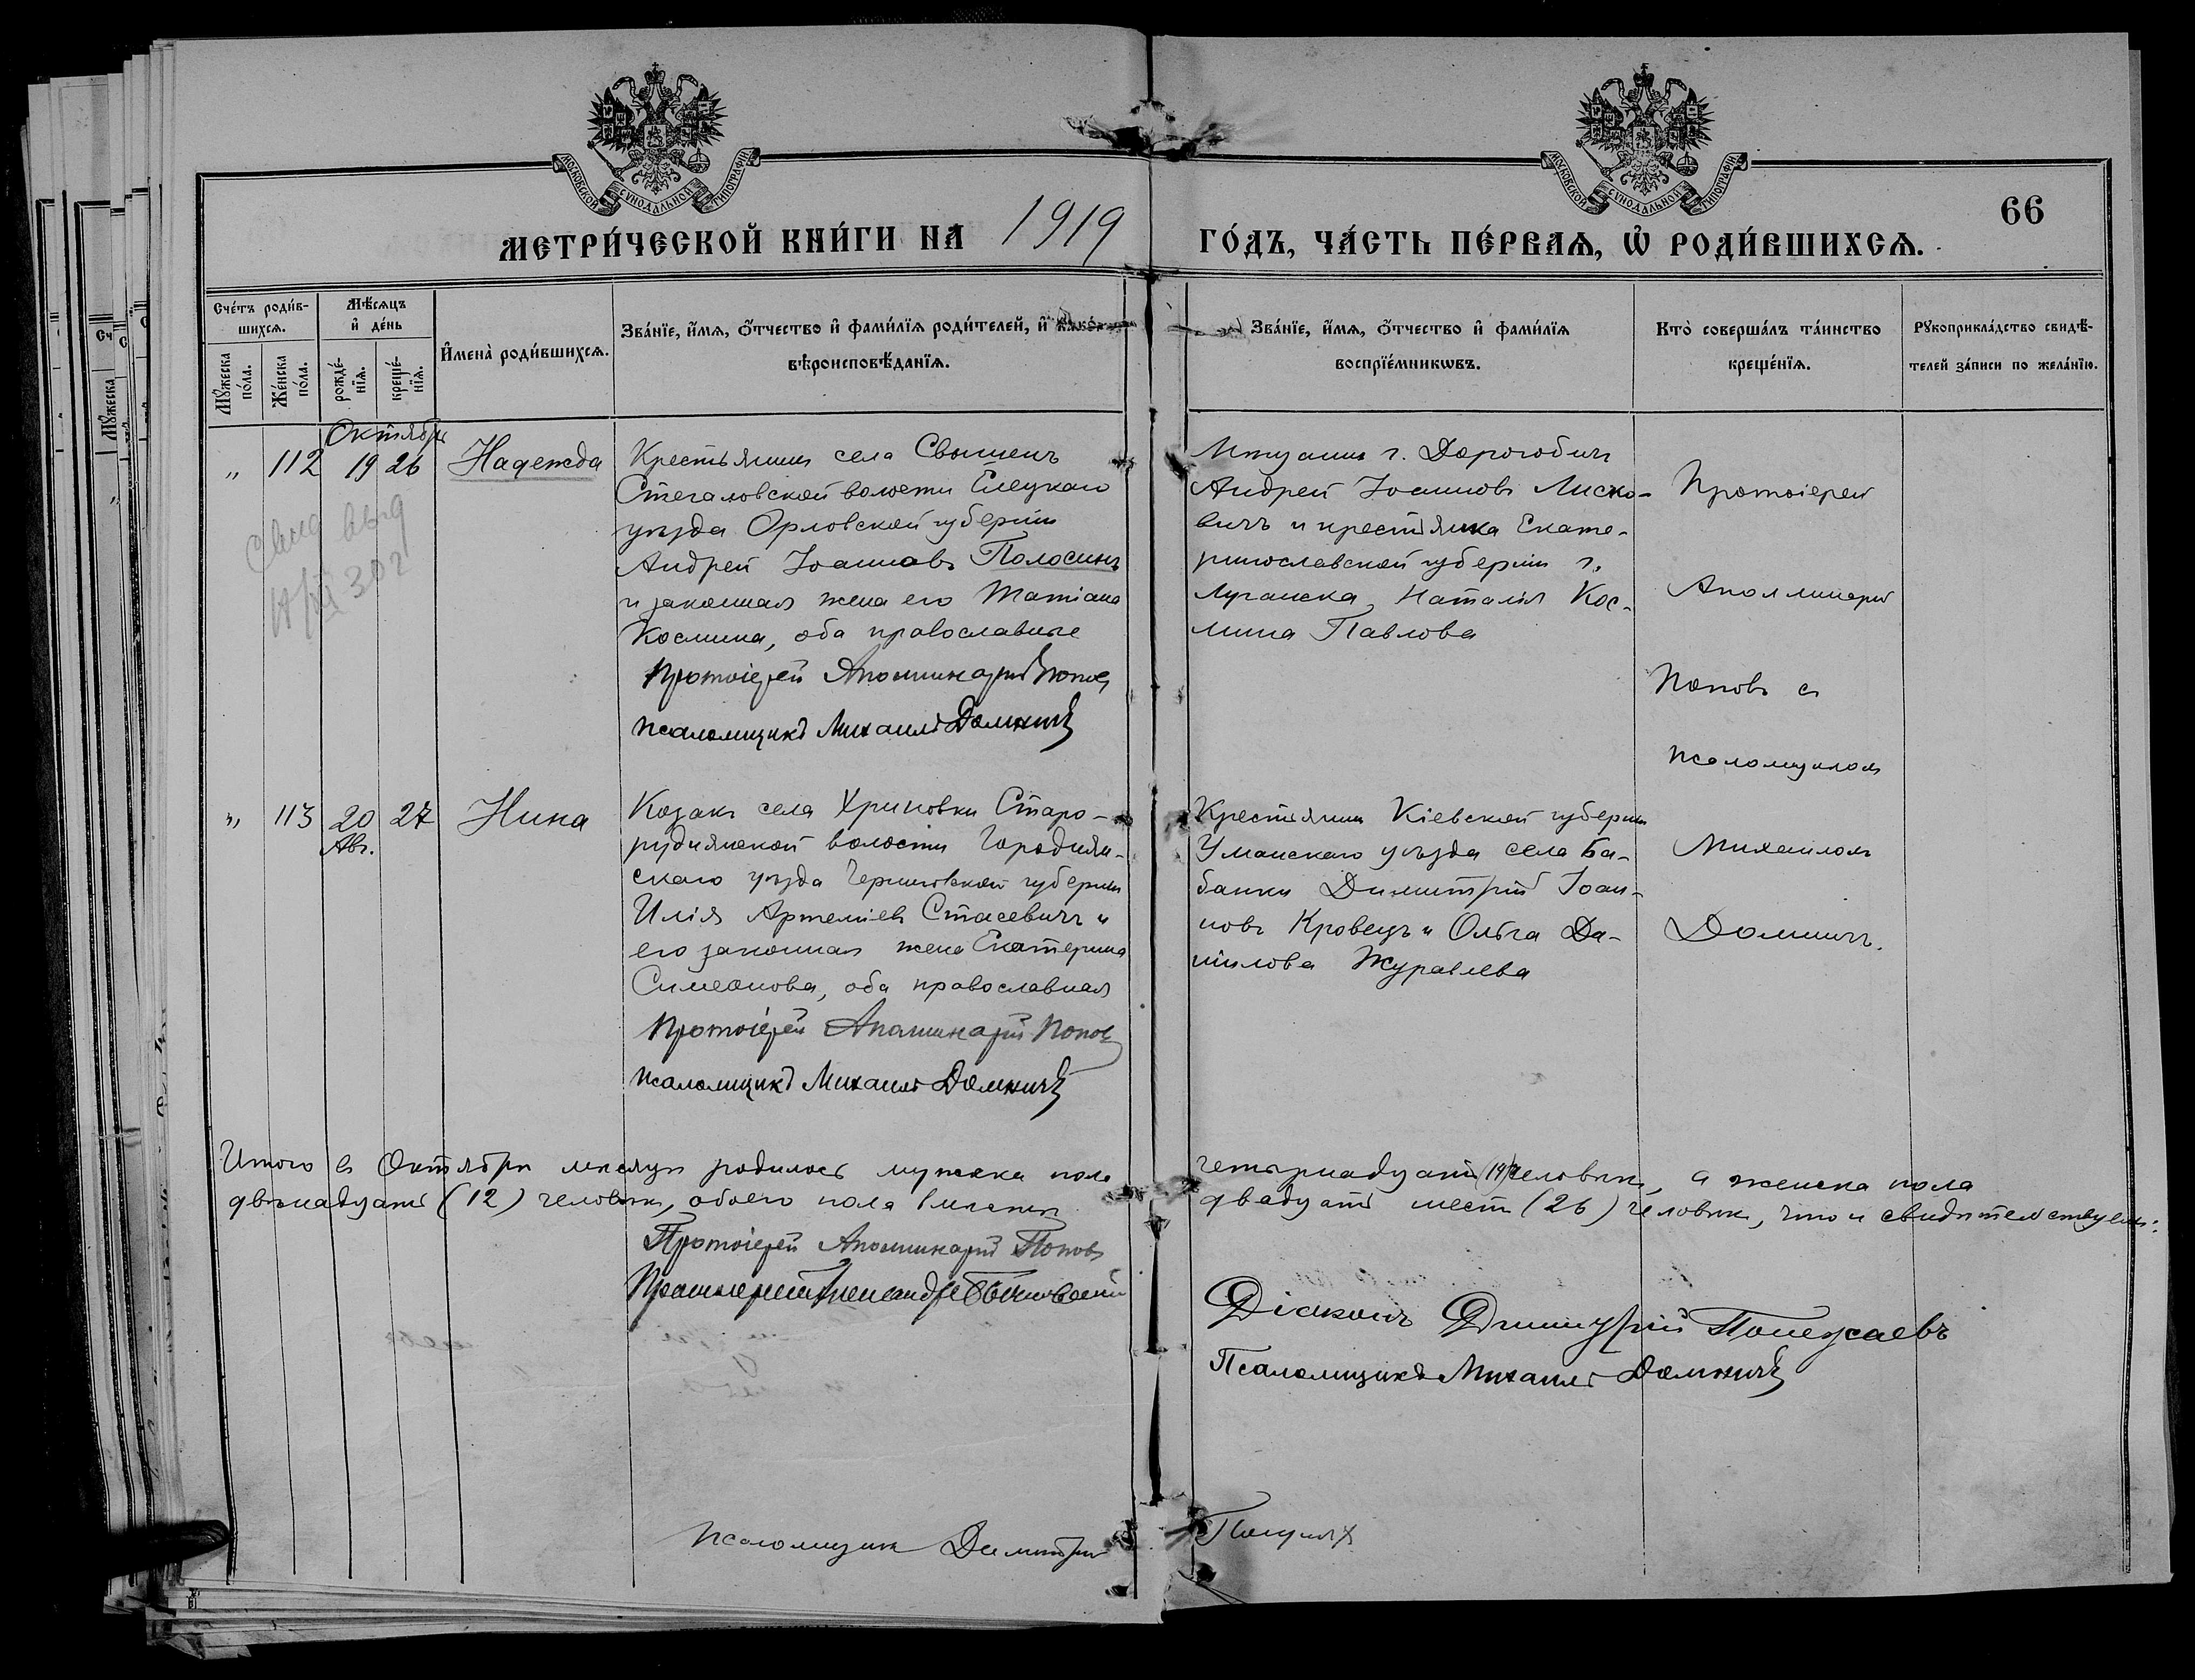 МОСКОВСКОЙ СѴНОДАЛЬНОЙ ТИПОГРАФІИ
МОСКОВСКОЙ СѴНОДАЛЬНОЙ ТИПОГРАФІИ
66
МЕТРИ́ЧЕСКОЙ КНИ́ГИ НА 1919 ГО́ДЪ, ЧА́СТЬ ПЕ́РВАѦ, Ѡ҆ РОДИ́ВШИХСѦ.
Сче́тъ роди́в-
шихсѧ.
Мꙋ́жеска
по́ла.
Же́нска
по́ла.
Мѣ́сѧцъ
и҆ де́нь
рожде́-
нїѧ.
креще́-
нїѧ.
И҆мена̀ роди́вшихсѧ.
Зва́нїе, и҆́мѧ, ѻ҆́тчество и҆ фами́лїѧ роди́телей, и҆ како́-
вѣроисповѣ́данїѧ.
Зва́нїе, и҆́мѧ, ѻ҆́тчество и҆ фами́лїѧ
воспрїе́мникѡвъ.
Кто̀ соверша́лъ та́инство
креще́нїѧ.
Рꙋкоприкла́дство свидѣ́-
телей за́писи по жела́нїю.
Октябрь
„ 112 19 26 Надежда
Крестьянинъ села
Стегаловской волости Елецкаго
уѣзда Орловской губерніи
Андрей Іоанновъ Полосинъ
и законная жена его Татіана
Космина, оба православные
Протоіерей Аполлинарій Поповъ
Псаломщикъ Михаилъ Домничъ
Мѣщанинъ г. Дорогобич
Андрей Іоанновъ Миско-
вичъ и крестьянка Екате-
ринославской губерніи г.
Луганска, Наталія Кос-
мина Павлова
Протоіерей
Аполлинарій
Поповъ съ
псаломщикомъ
Михаиломъ
Домничъ.
„ 113 20 27 Нина
Авг.
Козакъ села Хриповки Старо-
руднянской волости Городнян-
скаго уѣзда Черниговской губерніи
Илія Артеміевъ Стасевичъ и
его законная жена Екатерина
Симеонова, оба православная
Протоіерей Аполлинарій Поповъ
Псаломщикъ Михаилъ Домничъ
Крестьянинъ Кіевской губерніи
Уманскаго уѣзда села Ба-
банки Димитрій Іоан-
новъ Кровецъ и Ольга Да-
ніилова Журавлева
Итого въ Октябрѣ мѣсяцѣ родилось мужеска пола четырнадцать (14) человѣкъ, а женска пола
двѣнадцать (12) человѣкъ, обоего пола вмѣстѣ двадцать шесть (26) человѣкъ, что и свидѣтельствуемъ:
Протоіерей Аполлинарій Поповъ
Діаконъ Димитрій Полежаевъ
Псаломщикъ Михаилъ Домничъ
Псаломщикъ Димитрій